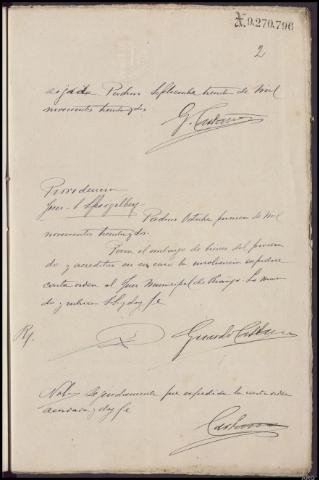 A.9.270.796
2
Padron Septiembre treinta de mil
novecientos treinta y dos.
G. 
Providencia
Juez
Padron Octubre primero de mil
novecientos treinta y dos.
Para el embargo de bienes del procesa
do y acreditar en su caso la insolvencia expídase
carta orden al Juez Municipal de  Lo man
do y rubrica S Sª doy fe
Rp.
Gerardo
Nota. Seguidamente fue expedida la carta orden
acordada, doy fe